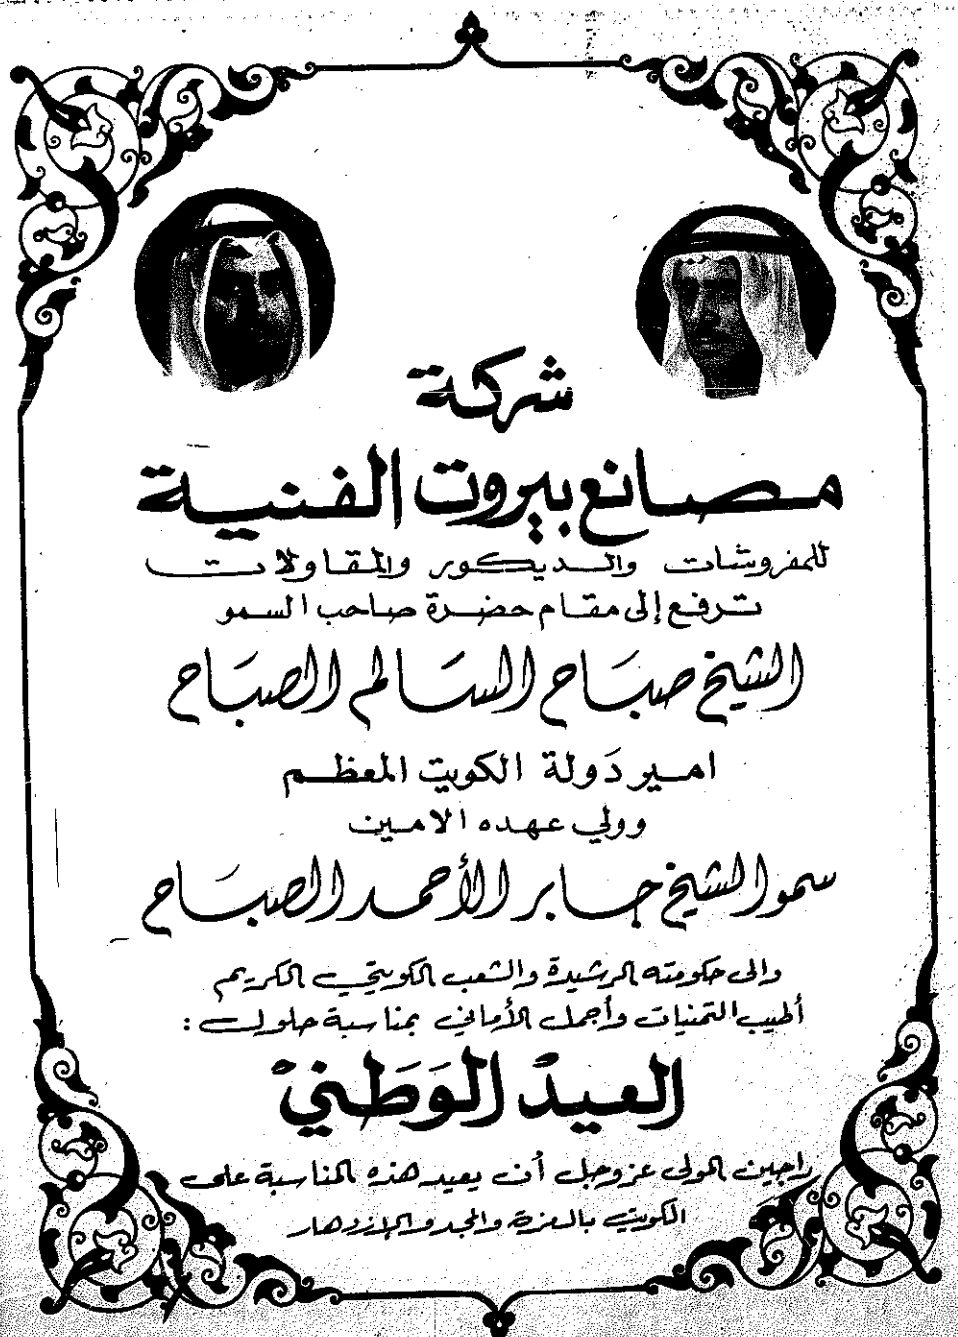 شركة
مصانع بيروت الفنية
للمفروشات والديكور والمقاولات
ترفع إلى مقام حضرة صاحب السمو
الشيخ صباح السالم الصباح
امير دَولة الكويت المعظم
وولي عهده الامين
سمو الشيخ جابر الأحمد الصباح
والى حكومته الرشيدة والشعب الكويتي الكريم
أطيب التمنيات وأجمل الأماني بمناسبة حلول :
العيدْ الوَطَنيْ
راجين المولى عز وجل أن يعيد هذه المناسبة على
الكويت بالعزة والمجد والإزدهار